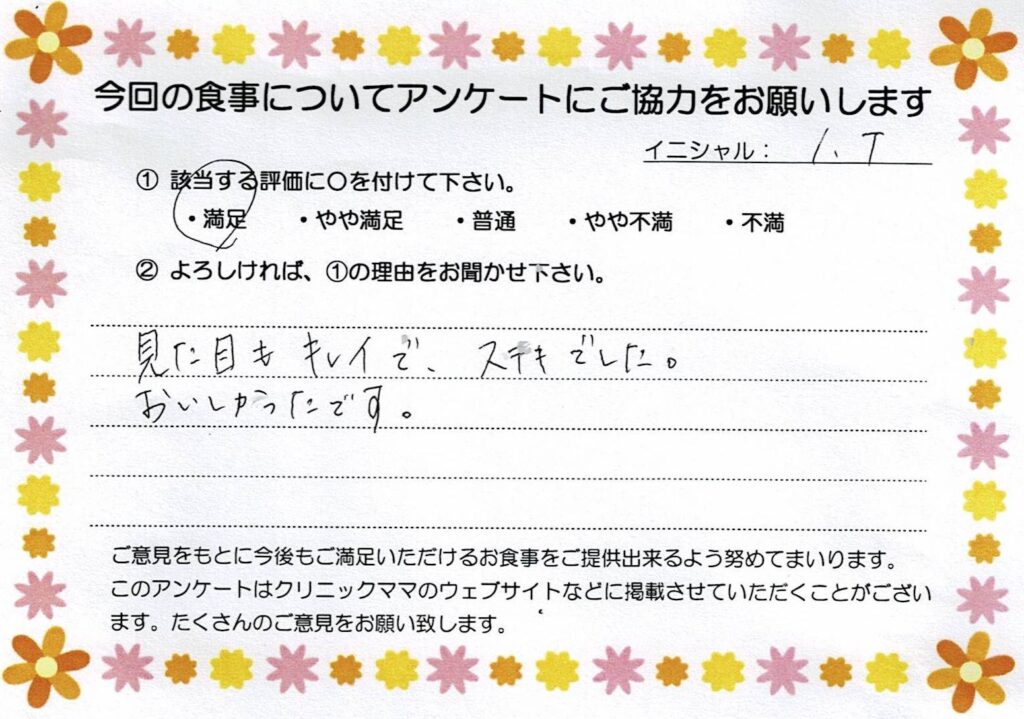 今回の食事についてアンケートにご協力をお願いします
イニシャル： I. T
① 該当する評価に〇を付けて下さい。
・満足 ・やや満足 ・普通 ・やや不満 ・不満
② よろしければ、①の理由をお聞かせ下さい。
見た目も キレイで、ステキでした。
おいしかったです。
ご意見をもとに今後もご満足いただけるお食事をご提供出来るよう努めてまいります。
このアンケートはクリニックママのウェブサイトなどに掲載させていただくことがござい
ます。たくさんのご意見をお願い致します。